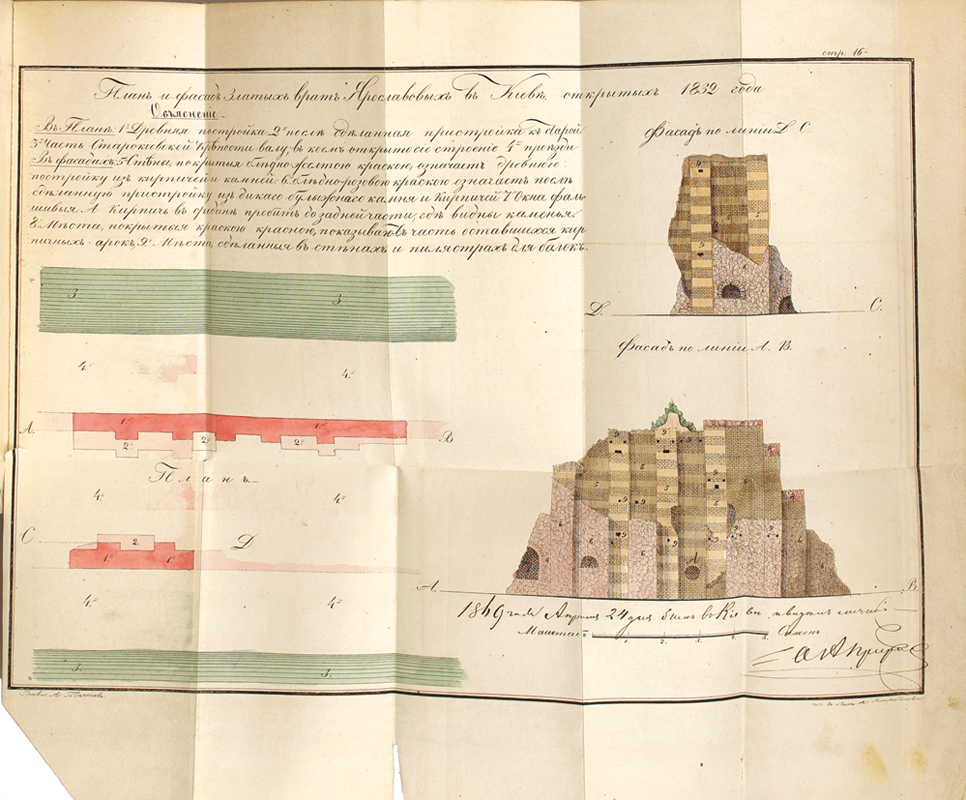 стр. 16
Планъ и фасадъ Златыхъ вратъ Ярославовыхъ въ Кіевѣ, открытыхъ 1832 года
Объясненіе
Въ Планѣ: 1. Древняя постройка 2. послѣ сдѣланная пристройка къ старой
3. Часть Старокіевской Крѣпости валу, въ коемъ открыто сіе строеніе 4. проѣзды
Въ фасадахъ: 5. Стѣны, покрытыя блѣдножолтою краскою, означаетъ древнюю
постройку изъ кирпичей и камней. 6. блѣднорозовою краскою означаетъ послѣ
сдѣланную пристройку изъ дикаго булыжнаго камня и Кирпичей 7. Окна фаль
шивыя А Кирпич въ срединѣ пробитъ до задней части, гдѣ видны каменья
8. Мѣста, покрытыя краскою красною, показываютъ часть оставшихся кир
пичныхъ арокъ, 9. Мѣста, сдѣланныя въ стѣнахъ и пилястрахъ для балокъ.
Фасадъ по линіи D. C
D. C.
Фасадъ по линіи A. B.
3 3
4. 4.
A. 1. 1. B
2. 2. 2.
Планъ
4. 4.
C 2. D
1. 1.
4. 4.
3. 3.
9 9 9
5 5
9 9 9
6 6 6 6
A
A. B.
1869 года Апреля 24 дня былъ въ
Масштабъ Сажень